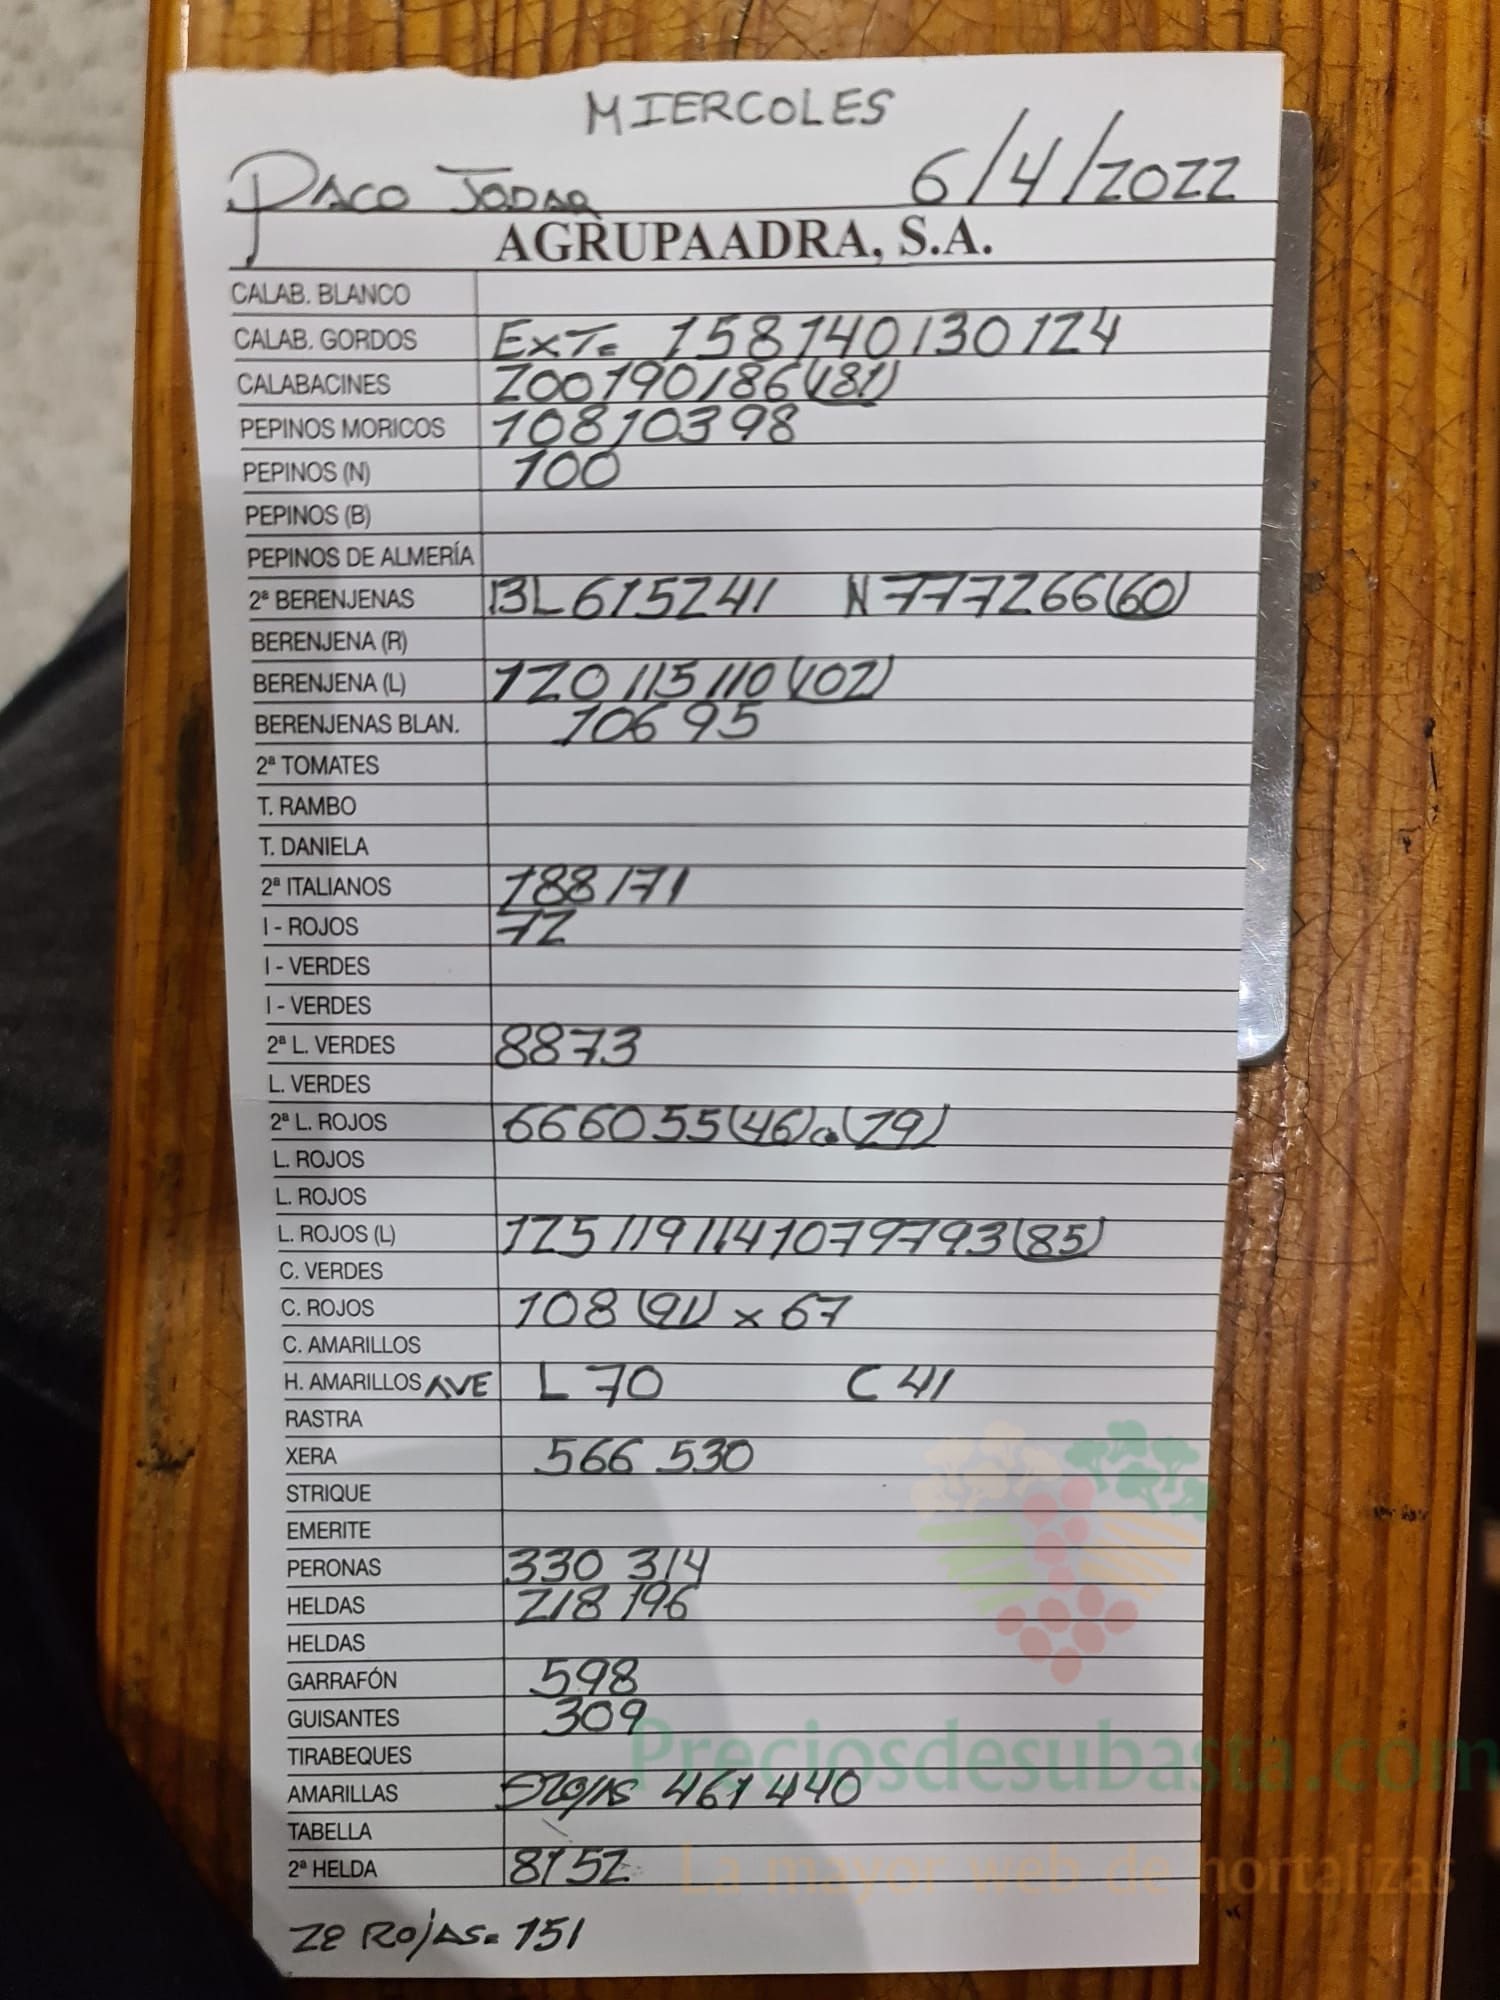 MIERCOLES
PACO JODAR 6/4/2022
AGRUPAADRA, S.A.
CALAB. BLANCO
CALAB. GORDOS EXT= 158 140 130 124
CALABACINES 200 190 186 (181)
PEPINOS MORICOS 108 103 98
PEPINOS (N) 100
PEPINOS (B)
PEPINOS DE ALMERÍA
2ª BERENJENAS BL 61 52 41 N 77 72 66 (60)
BERENJENA (R)
BERENJENA (L) 120 115 110 (102)
BERENJENAS BLAN. 106 95
2ª TOMATES
T. RAMBO
T. DANIELA
2ª ITALIANOS 188 171
I - ROJOS 72
I - VERDES
I - VERDES
2ª L. VERDES 88 73
L. VERDES
2ª L. ROJOS 66 60 55 (46) a (29)
L. ROJOS
L. ROJOS
L. ROJOS (L) 125 119 114 107 97 93 (85)
C. VERDES
C. ROJOS 108 (91) x 67
C. AMARILLOS
H. AMARILLOS AVE L 70 C 41
RASTRA
XERA 566 530
STRIQUE
EMERITE
PERONAS 330 314
HELDAS 218 196
HELDAS
GARRAFÓN 598
GUISANTES 309
TIRABEQUES
AMARILLAS 461 440
TABELLA
2ª HELDA 81 52
Rojas= 151
Preciosdesubasta.com
La mayor web de hortalizas